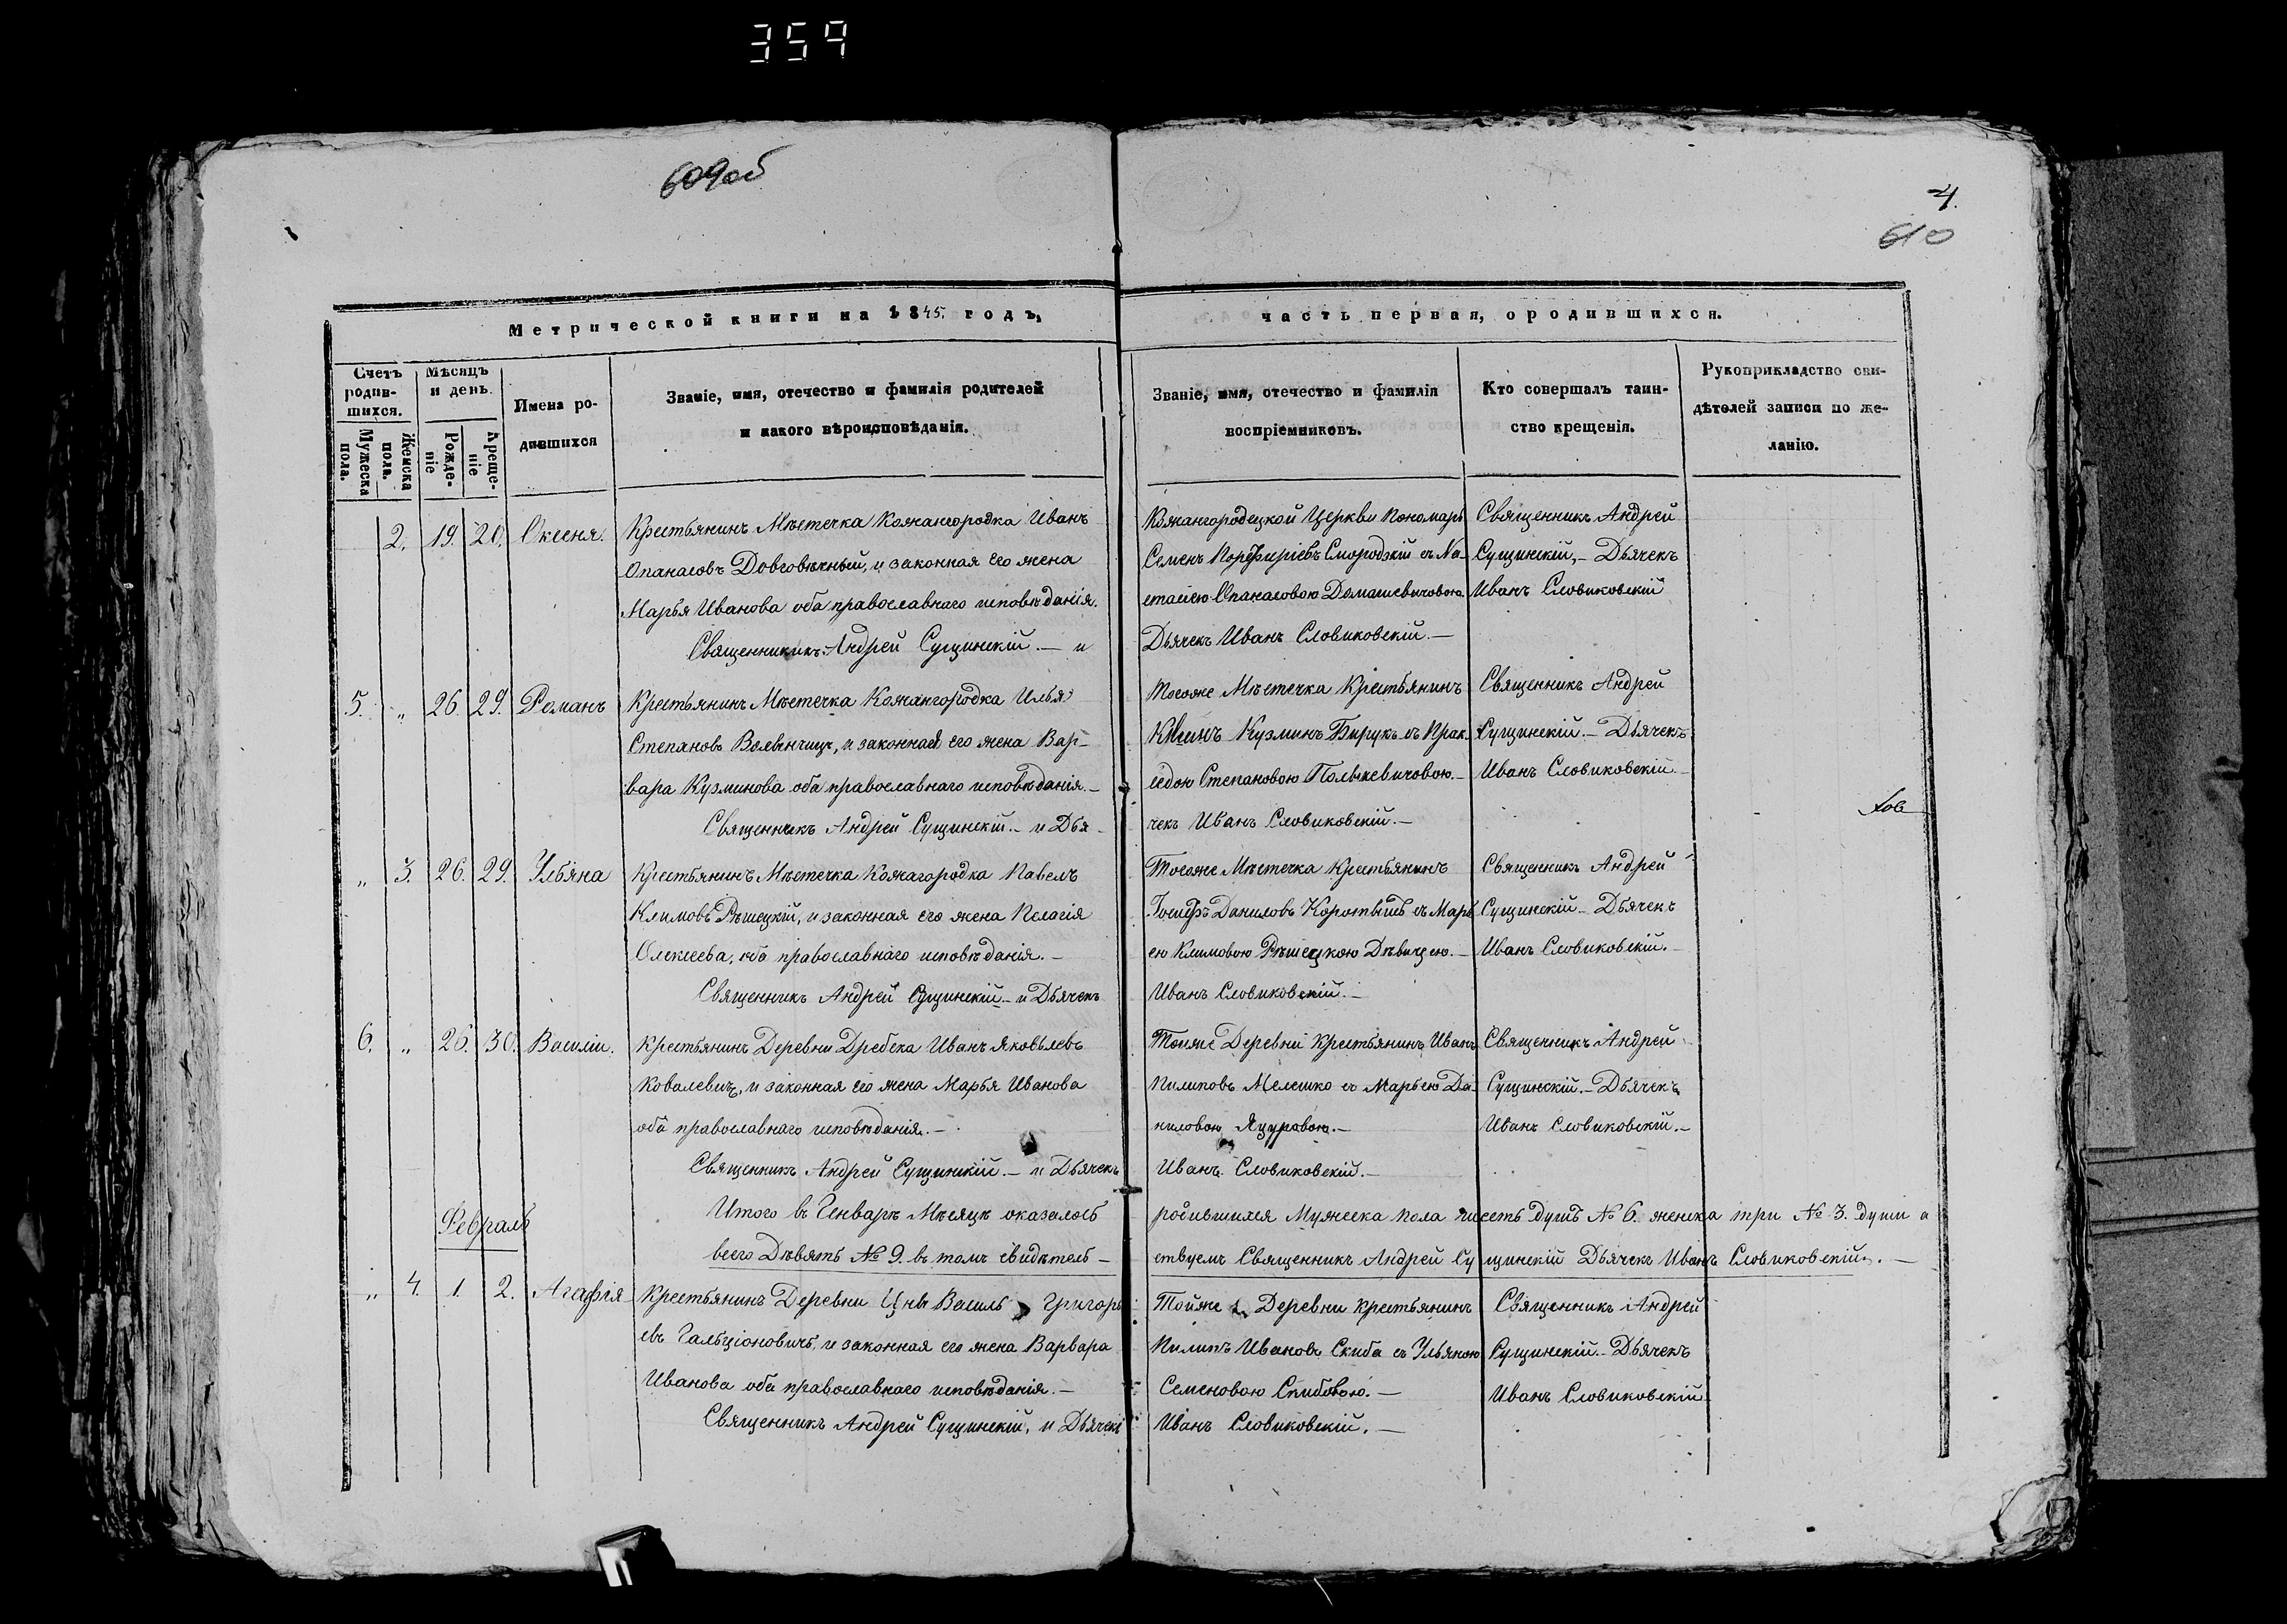 359
609об
4.
610
Метрической книги на 1845. годъ,
часть первая, о родившихся.
Счетъ родив-шихся.
Мужеска пола.
Женска пола.
Мѣсяцъ и день.
Рожде-ніе
Креще-ніе
Имена ро-дившихся
Званіе, имя, отечество и фамилія родителей
и какого вѣроисповѣданія.
Званіе, имя, отечество и фамилія
воспріемниковъ.
Кто совершалъ таин-
ство крещенія.
Рукоприкладство сви-
дѣтелей записи по же-
ланію.
2. 19. 20. Оксеня. Крестьянинъ Мѣстечка Кожангородка Иванъ
Опанасовъ Довговѣчный, и законная его жена
Марья Иванова оба православнаго исповѣданія.
Священникъ Андрей Сущинскій. — и
Кожангородецкой Церкви Пономарь
Семенъ Порфиріевъ Смородскій съ На-
стасією Опанасовою Домашевичовою.
Дьячекъ Иванъ Словиковскій. —
Священникъ Андрей
Сущинскій, — Дьячекъ
Иванъ Словиковскій
5. „ 26. 29. Романъ Крестьянинъ Мѣстечка Кожангородка Илья
Степановъ Волынчицъ, и законная его жена Вар-
вара Кузминова оба православнаго исповѣданія. —
Священникъ Андрей Сущинскій. — и Дья-
Тогоже Мѣстечка Крестьянинъ
Кузминъ Бирукъ съ Прак-
седою Степановою Полькевичовою. —
чекъ Иванъ Словиковскій. —
Священникъ Андрей
Сущинскій. — Дьячекъ
Иванъ Словиковскій. —
„ 3. 26. 29. Ульяна Крестьянинъ Мѣстечка Кожагородка Павелъ
Климовъ Рѣшецкій, и законная его жена Пелагія
Олексеева, оба православнаго исповѣданія. —
Священникъ Андрей Сущинскій — и Дьячекъ
Тогоже Мѣстечка Крестьянинъ
Іосифъ Даниловъ Коротышъ съ Марь-
ею Климовою Рѣшецкою Дѣвицею. —
Иванъ Словиковскій. —
Священникъ Андрей
Сущинскій — Дьячекъ
Иванъ Словиковскій. —
6. „ 26. 30. Василій. Крестьянинъ Деревни Дребска Иванъ Яковьлевъ
Ковалевичъ, и законная его жена Марья Иванова
оба православнаго исповѣданія. —
Священникъ Андрей Сущинскій. — и Дьячекъ
Тойже Деревни Крестьянинъ Иванъ
Пилиповъ Мелешко съ Марьею Да-
ниловою Яцуровою. —
Иванъ Словиковскій. —
Священникъ Андрей
Сущинскій. — Дьячекъ
Иванъ Словиковскій. —
Итого въ Генварѣ Мѣсяцѣ оказалось родившихся Мужеска пола шесть душъ № 6. женска три № 3. души а
всего Дѣвять № 9. въ томъ свидѣтель-ствуемъ Священникъ Андрей Сущинскій Дьячекъ Иванъ Словиковскій. —
Февраль
„ 4. 1. 2. Агафія Крестьянинъ Деревни Цны Василь Григорь-
евъ Гальціоновичъ, и законная его жена Варвара
Иванова оба православнаго исповѣданія. —
Священникъ Андрей Сущинскій, и Дьячекъ
Тойже Деревни Крестьянинъ
Пилипъ Ивановъ Скиба съ Ульяною
Семеновою Скибовою. —
Иванъ Словиковскій. —
Священникъ Андрей
Сущинскій. — Дьячекъ
Иванъ Словиковскій